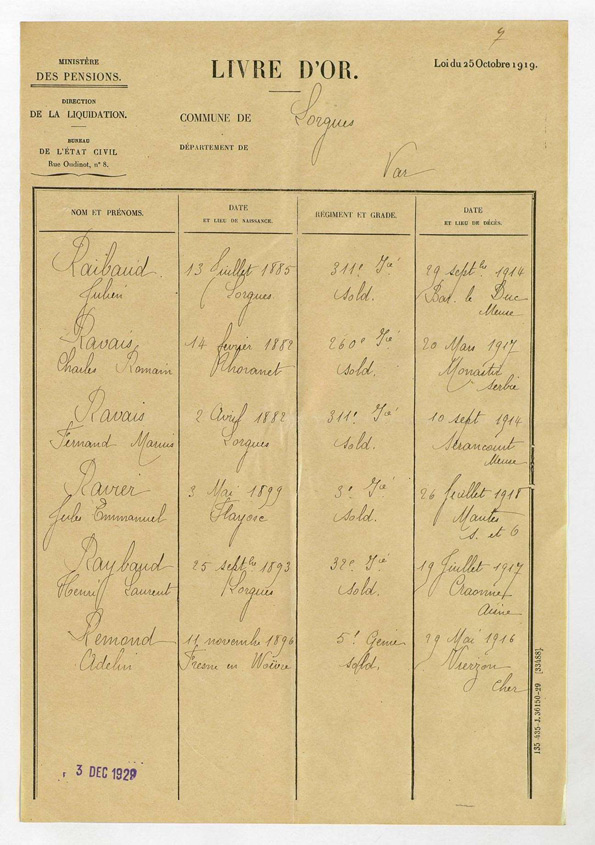 9
MINISTÈRE
DES PENSIONS.
DIRECTION
DE LA LIQUIDATION.
BUREAU
DE L'ÉTAT CIVIL
Rue Oudinot, n° 8.
LIVRE D'OR.
Loi du 25 Octobre 1919.
COMMUNE DE Lorgues
DÉPARTEMENT DE
Var
NOM ET PRÉNOMS.
DATE
ET LIEU DE NAISSANCE.
RÉGIMENT ET GRADE.
DATE
ET LIEU DE DÉCÈS.
Raibaud 13 Juillet 1885 311e Ié 29 septbe 1914
Julien Lorgues sold. Bar. le Duc
Meuse
Ravais 14 février 1882 260e Ié 20 Mars 1917
Charles Romain sold. Monastir
Serbie
Ravais 2 Avril 1882 311e Ié 10 sept 1914
Fernand Marius Lorgues sold. Serancourt
Meuse
Ravier 3 Mai 1899 3e Ié 26 Juillet 1918
Jules Emmanuel Flayosc sold. Mantes
S. et O
Raybaud 25 septbe 1893 32e Ié 19 Juillet 1917
Henri Laurent Lorgues sold. Craonne
Aisne
Remond 11 novembre 1896 5e Génie 29 Mai 1916
Adelin Fresne en Woëvre sold. Vierzon
Cher
3 DEC 1929
135-435-J. 36150-29 [33488]